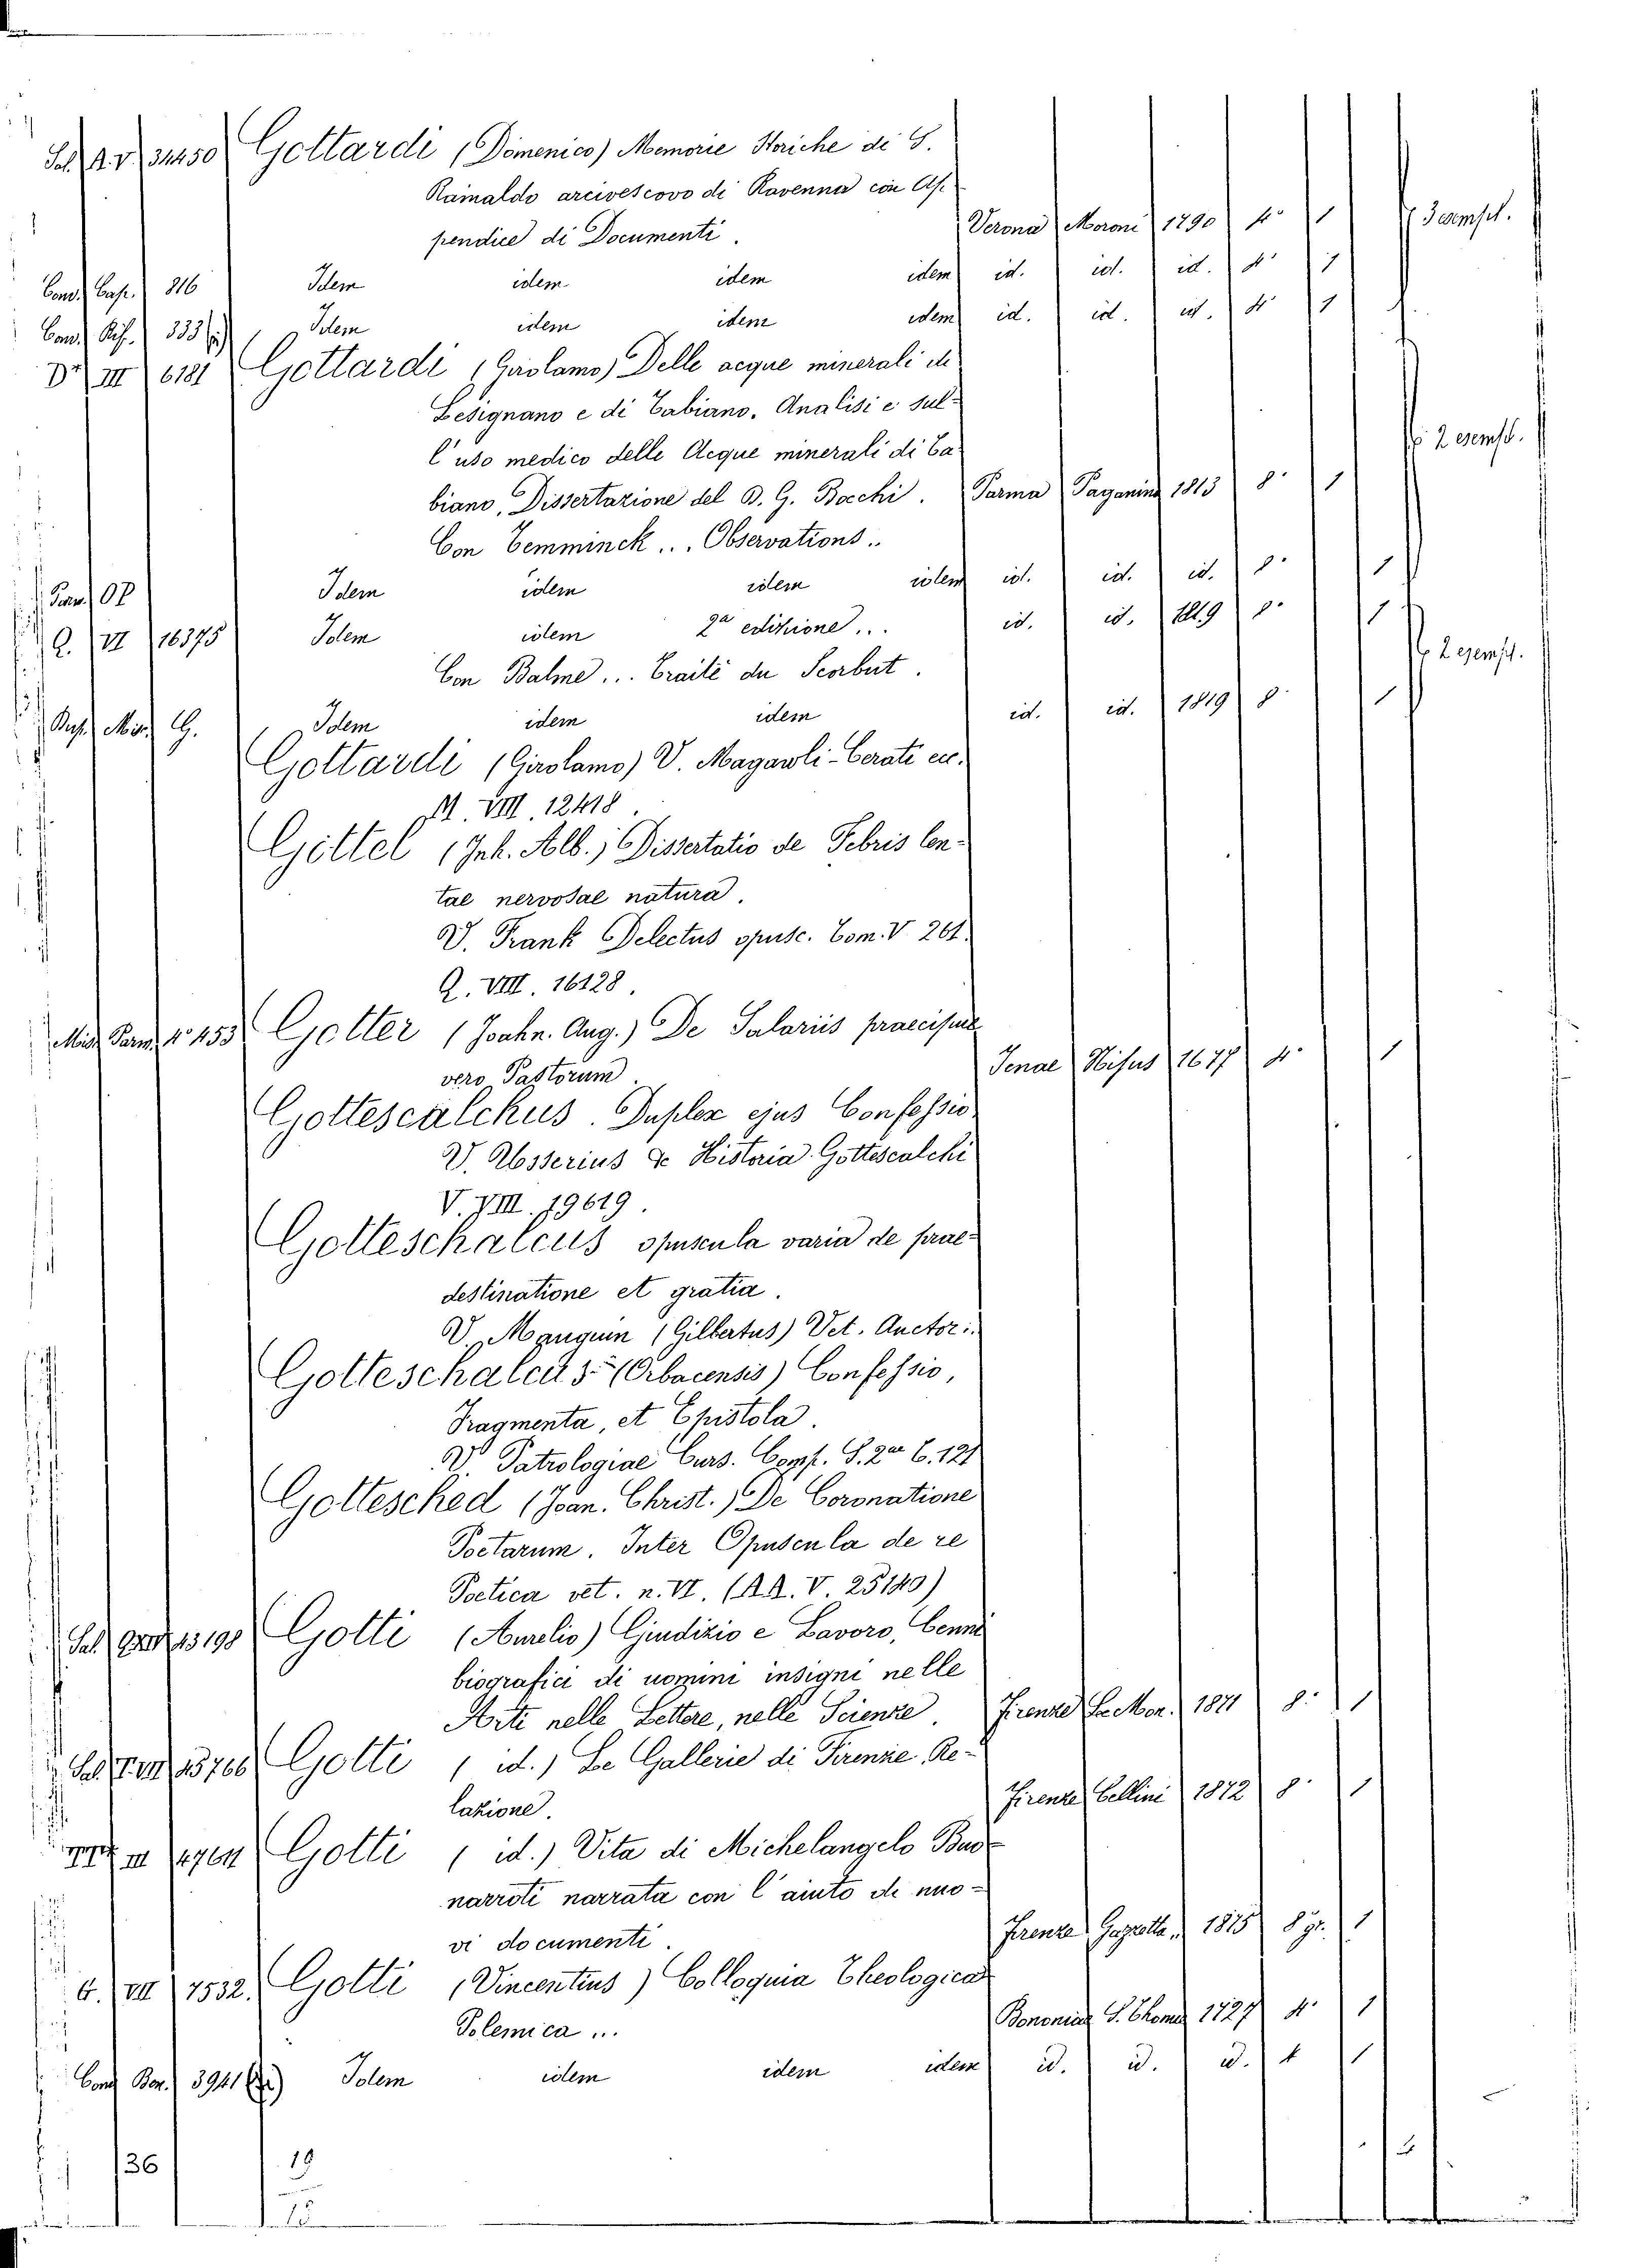 Sal. A.V. 34450 Gottardi (Domenico) Memorie Storiche di S.
Rainaldo arcivescovo di Ravenna con Ap-
pendice di Documenti. Verona Moroni 1790 4° 1 3 esempl.
Cons. Casp. 816 Idem idem idem idem id. id. id. 4° 1
333 Idem idem idem idem id. id. id. 4° 1
Dr III 6181 Gottardi (Girolamo) Delle acque minerali di
Lesignano e di Tabiano. Analisi e sul-
l'uso medico delle Acque minerali di Ta-
biano, Dissertazione del D. G. Bocchi. Parma Paganino 1813 8° 1 2 esempl.
Con Temminck... Observations..
Parm. 07 Idem idem idem idem id. id. id. 8° 1
Q. VII 16375 Idem idem 2a edizione... id. id. 1819 8° 1 2 esempl.
Con Balme... Traité du Scorbut.
G. Idem idem idem id. id. 1819 8° 1
Gottardi (Girolamo) V. Magawli-Cerati ecc.
M. VIII. 12418.
Gottel (Joh. Alb.) Dissertatio de Febris len-
tae nervosae natura.
V. Frank Delectus opusc. Tom. V 261.
Q. VIII. 16128.
Misc. Parm. 4° 453 Gotter (Joahn. Aug.) De Salariis praecipue
vero Pastorum. Jenae Nisus 1677 4° 1
Gottescalchus. Duplex ejus Confessio
V. Usserius de Historia Gottescalchi
V. VIII. 19619.
Gotteschalcus opuscula varia de prae-
destinatione et gratia.
V. Mauguin (Gilbertus) Vet. Auctor..
Gotteschalcus (Orbacensis) Confessio,
Fragmenta, et Epistola.
V. Patrologiae Curs. Comp. S. 2a T. 121
Gottesched (Joan. Christ.) De Coronatione
Poetarum. Inter Opuscula de re
Poetica vet. n. VI. (AA. V. 25140)
Sal. 13198 Gotti (Aurelio) Giudizio e Lavoro, Cenni
biografici di uomini insigni nelle
Arti nelle Lettere, nelle Scienze. Firenze Le Mon. 1871 8° 1
Sal. 15766 Gotti (id.) Le Gallerie di Firenze Re-
lazione. Firenze Cellini 1872 8° 1
III Gotti (id.) Vita di Michelangelo Buo-
narroti narrata con l'aiuto di nuo-
vi documenti. Firenze Gazzetta 1875 8 gr. 1
G. VII 7532. Gotti (Vincentius) Colloquia Theologica
Polemica... Bononiae S. Thomae 1727 4° 1
3941 Idem idem idem idem id. id. id. 4 1
36 19
15